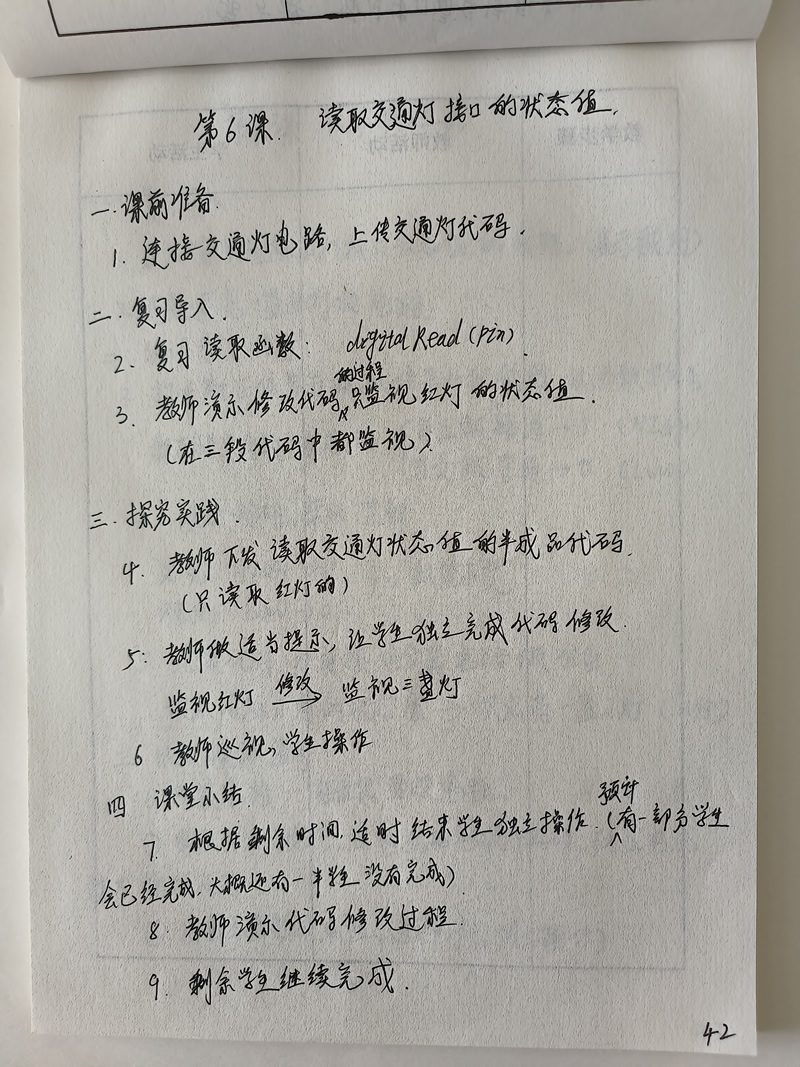 第6课. 读取交通灯接口的状态值.
一.课前准备.
1. 连接交通灯电路, 上传交通灯代码.
二.复习导入.
2. 复习读取函数: digital Read (pin).
3. 教师演示修改代码的过程只监视红灯的状态值.
(在三段代码中都监视).
三.探究实践.
4. 教师下发读取交通灯状态值的半成品代码.
(只读取红灯的)
5: 教师做适当提示, 让学生独立完成代码修改.
监视红灯 修改→ 监视三盏灯
6 教师巡视, 学生操作
四 课堂小结.
7. 根据剩余时间,适时结束学生独立操作.(预计有一部分学生
会已经完成,大概还有一半学生没有完成)
8. 教师演示代码修改过程.
9. 剩余学生继续完成.
42